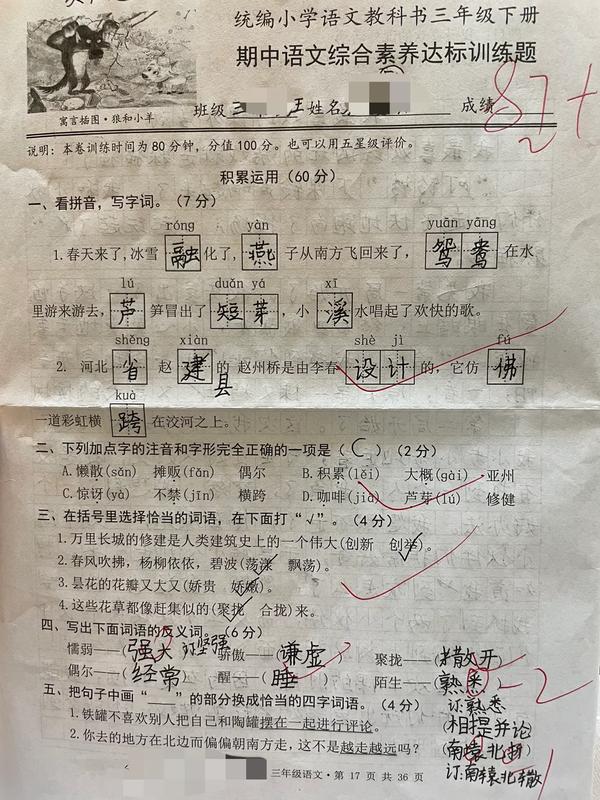 统编小学语文教科书三年级下册
期中语文综合素养达标训练题
寓言插图·狼和小羊
班级 三 姓名 成绩 87+
说明：本卷训练时间为80分钟，分值100分。也可以用五星级评价。
积累运用（60分）
一、看拼音，写字词。（7分）
róng yàn yuān yāng
1.春天来了，冰雪 融 化了，燕 子从南方飞回来了，鸳 鸯 在水
lú duǎn yá xī
里游来游去，芦 笋冒出了 短 芽，小 溪 水唱起了欢快的歌。
shěng xiàn shè jì fú
2. 河北 省 赵 建 的 赵州桥是由李春 设 计 的，它仿 佛
县
kuà
一道彩虹横 跨 在洨河之上。
二、下列加点字的注音和字形完全正确的一项是（ C ）（2分）
A.懒散(sǎn) 摊贩(fǎn) 偶尔 B.积累(lěi) 大概(gài) 亚州
C.惊讶(yà) 不禁(jīn) 横跨 D.咖啡(jiā) 芦芽(lú) 修健
三、在括号里选择恰当的词语，在下面打“√”。（4分）
1.万里长城的修建是人类建筑史上的一个伟大(创新 创举)。
2.春风吹拂，杨柳依依，碧波(荡漾 飘荡)。
3.昙花的花瓣又大又(娇贵 娇嫩)。
4.这些花草都像赶集似的(聚拢 合拢)来。
四、写出下面词语的反义词。（6分）
懦弱——(强大 订坚强 骄傲——(谦虚) 聚拢——(散开)
偶尔——(经常) 醒——(睡) 陌生——(熟悉) -2
订:熟悉
五、把句子中画“____”的部分换成恰当的四字词语。（4分）
1.铁罐不喜欢别人把自己和陶罐摆在一起进行评论。 (相提并论)
2.你去的地方在北边而偏偏朝南方走，这不是越走越远吗？ (南辕北
订:南辕北辙
三年级语文·第 17 页 共 36 页